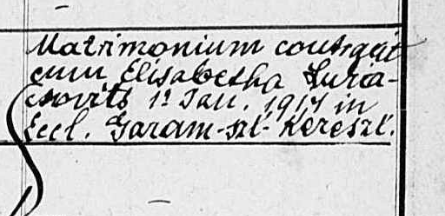 Matrimonium contraxit
cum Elisabetha Jura-
csovits 1? Jan. 1917 in
Eccl. Garam-szt-Kereszt.